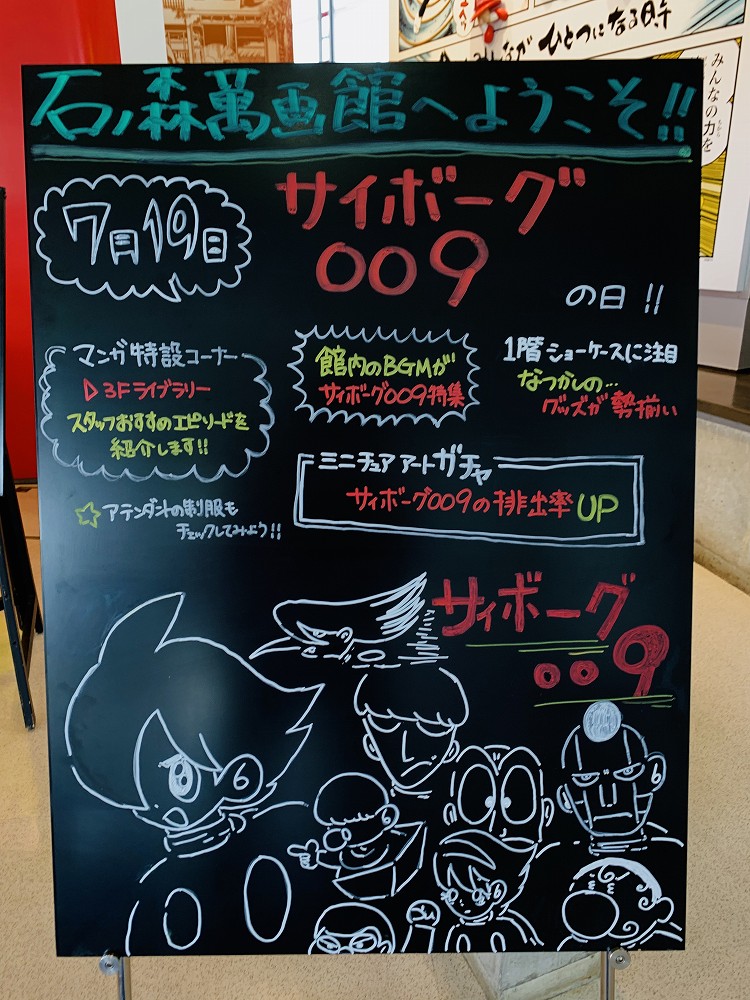 みんながひとつになる時
みんなの力を
石ノ森萬画館へようこそ!!
7月19日
サイボーグ
009
の日 !!
マンガ特設コーナー
▷3Fライブラリー
スタッフおすすめエピソードを
紹介します!!
館内のBGMが
サイボーグ009特集
1階ショーケースに注目
なつかしの…
グッズが勢揃い
ミニチュアアートガチャ
サイボーグ009の排出率UP
☆アテンダントの制服も
チェックしてみよう!!
サイボーグ
009